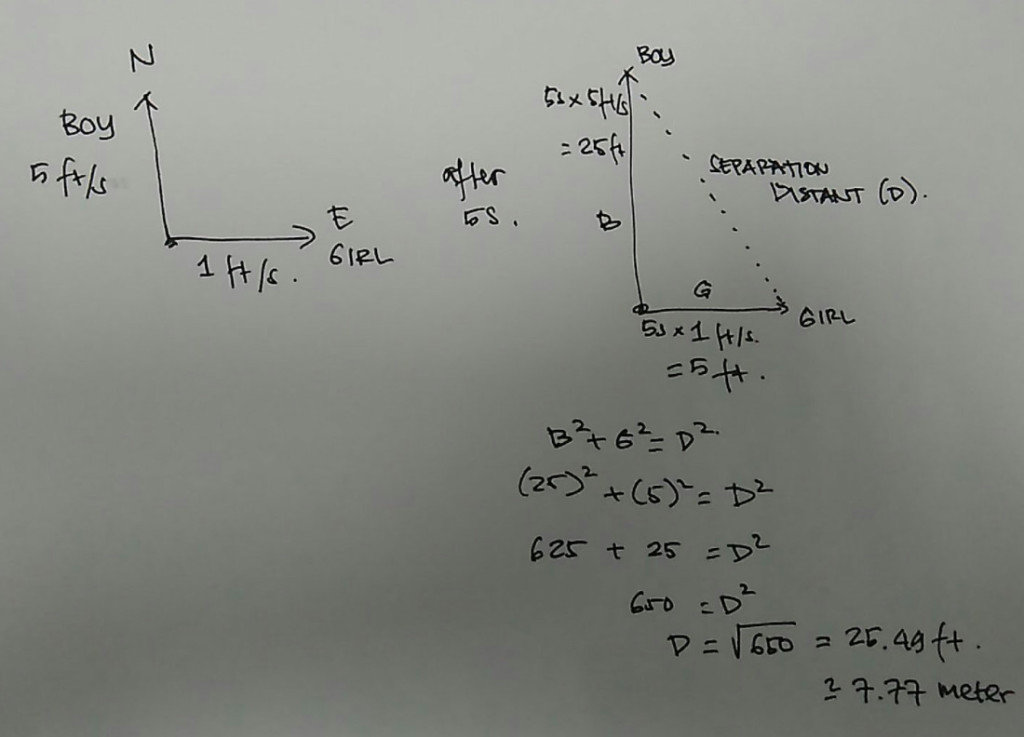 N
BOY
5 ft/s
E
GIRL
1 ft/s.
after
5S.
BOY
5s x 5ft/s
= 25ft
B
SEPARATION
DISTANT (D).
G
GIRL
5s x 1 ft/s.
= 5 ft.
B² + G² = D².
(25)² + (5)² = D²
625 + 25 = D²
650 = D²
D = √650 = 25.49 ft.
≅ 7.77 meter